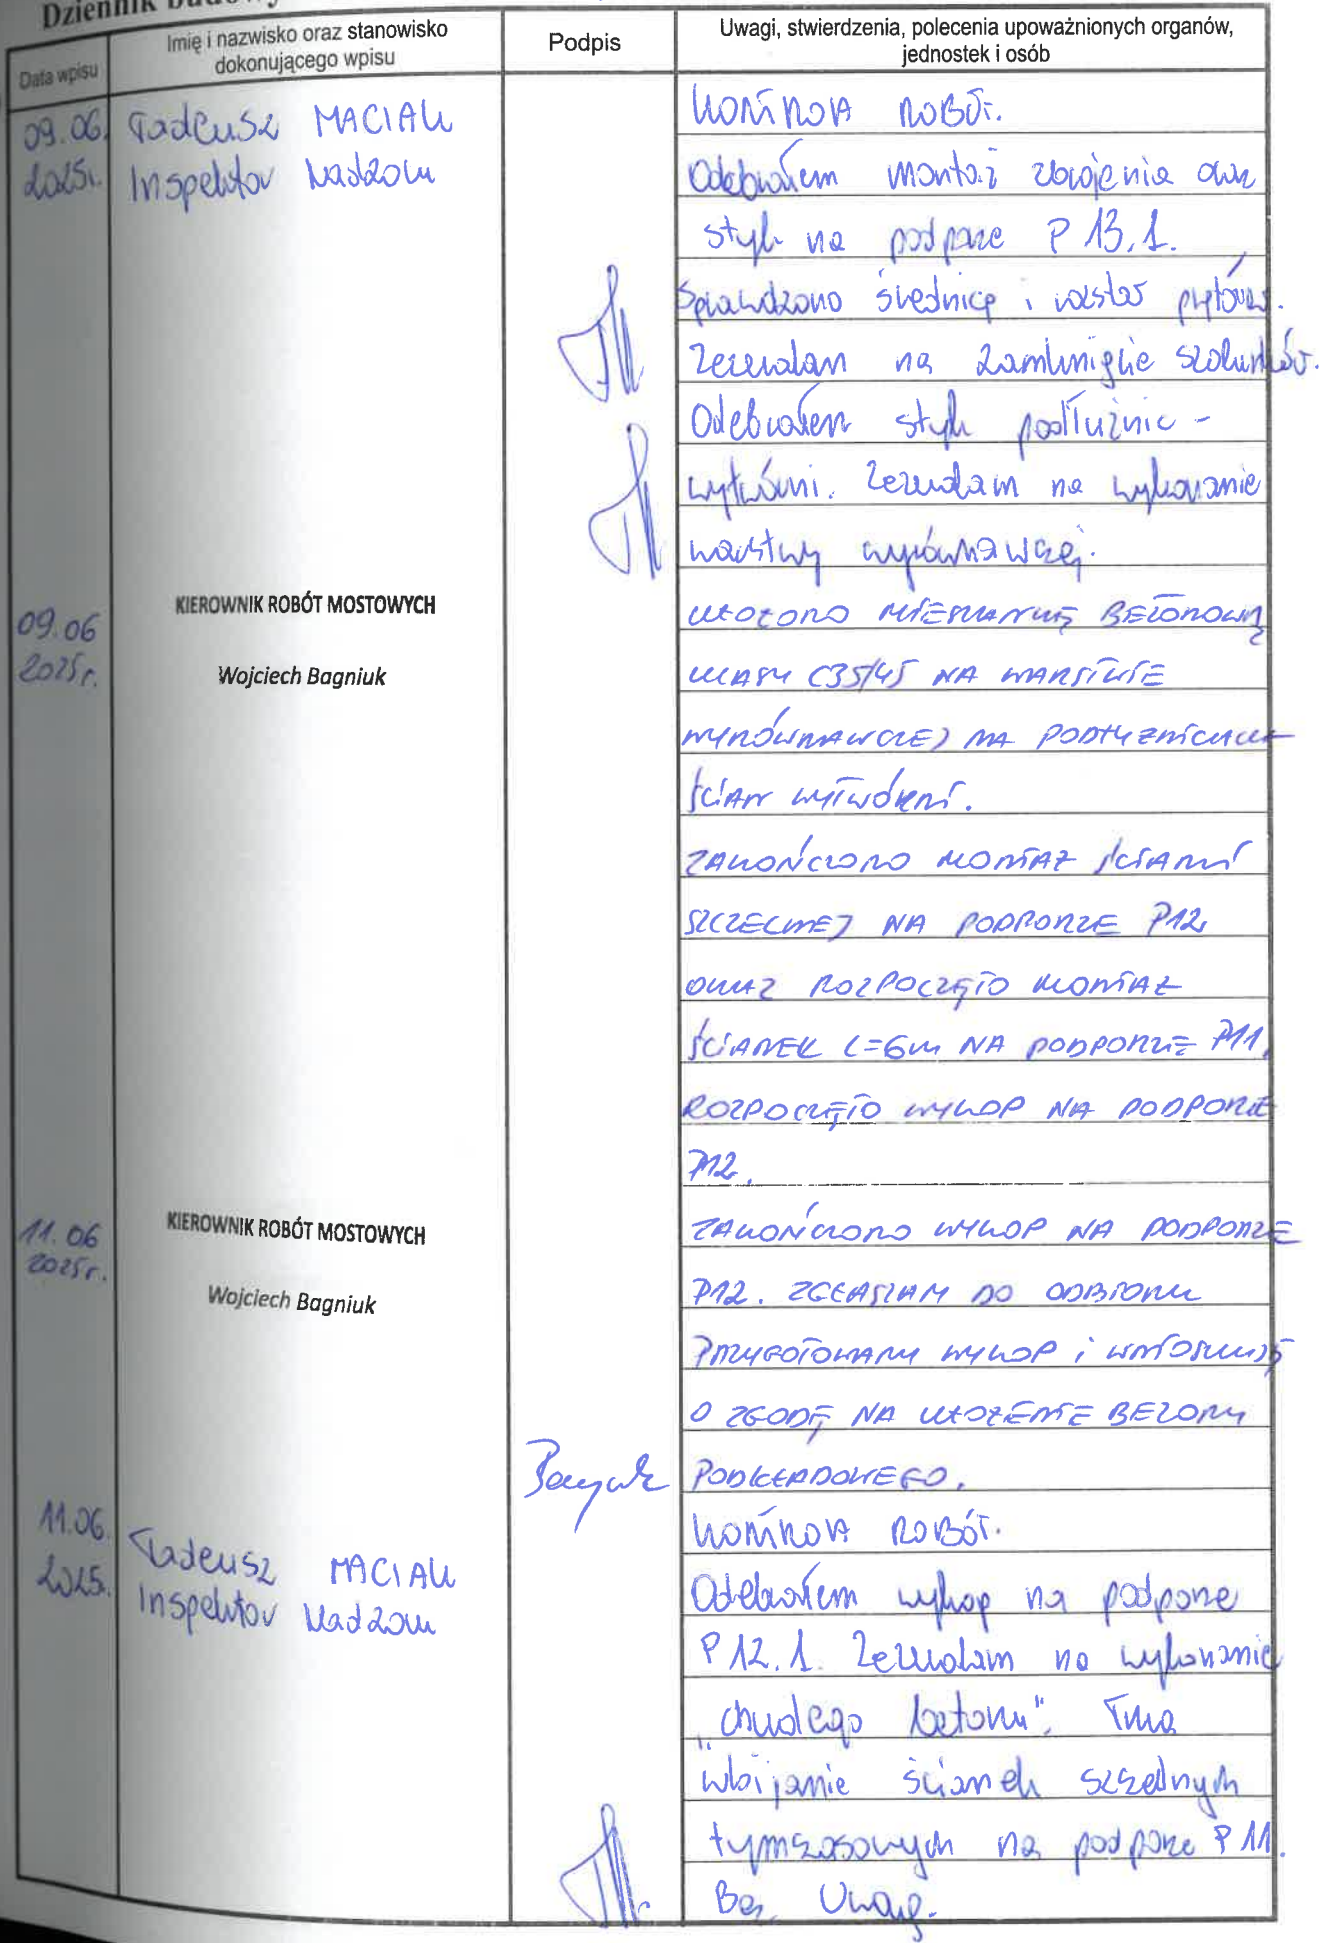 Dziennik budowy
Data wpisu
Imię i nazwisko oraz stanowisko
dokonującego wpisu
Podpis
Uwagi, stwierdzenia, polecenia upoważnionych organów,
jednostek i osób
09.06.
2025r.
Tadeusz MACIAK
Inspektor Nadzoru
KONTROLA ROBÓT.
Odebrałem montaż zbrojenia oraz
styk na podporze P 13.1.
Sprawdzono średnicę i rozstaw prętów.
Zezwalam na zamknięcie szalunków.
Odebrałem styk podłużnic -
wytwórni. Zezwalam na wykonanie
warstwy wyrównawczej.
09.06
2025r.
KIEROWNIK ROBÓT MOSTOWYCH
Wojciech Bagniuk
UŁOŻONO MIESZANKĘ BETONOWĄ
KLASY C35/45 NA WARSTWIE
WYRÓWNAWCZEJ NA PODŁUŻNICACH
ŚCIAN WYTWÓRNI.
ZAKOŃCZONO MONTAŻ ŚCIANKI
SZCZELNEJ NA PODPORZE P12
ORAZ ROZPOCZĘTO MONTAŻ
ŚCIANEK L=6m NA PODPORZE P11.
ROZPOCZĘTO WYKOP NA PODPORZE
P12.
11.06
2025r.
KIEROWNIK ROBÓT MOSTOWYCH
Wojciech Bagniuk
ZAKOŃCZONO WYKOP NA PODPORZE
P12. ZGŁASZAM DO ODBIORU
PRZYGOTOWANY WYKOP i WNIOSKUJĘ
O ZGODĘ NA UŁOŻENIE BETONU
PODKŁADOWEGO.
11.06.
2025.
Tadeusz MACIAK
Inspektor Nadzoru
KONTROLA ROBÓT.
Odebrałem wykop na podporze
P 12.1. Zezwalam na wykonanie
"chudego betonu". Trwa
wbijanie ścianek szczelnych
tymczasowych na podporze P 11.
Bez Uwag.